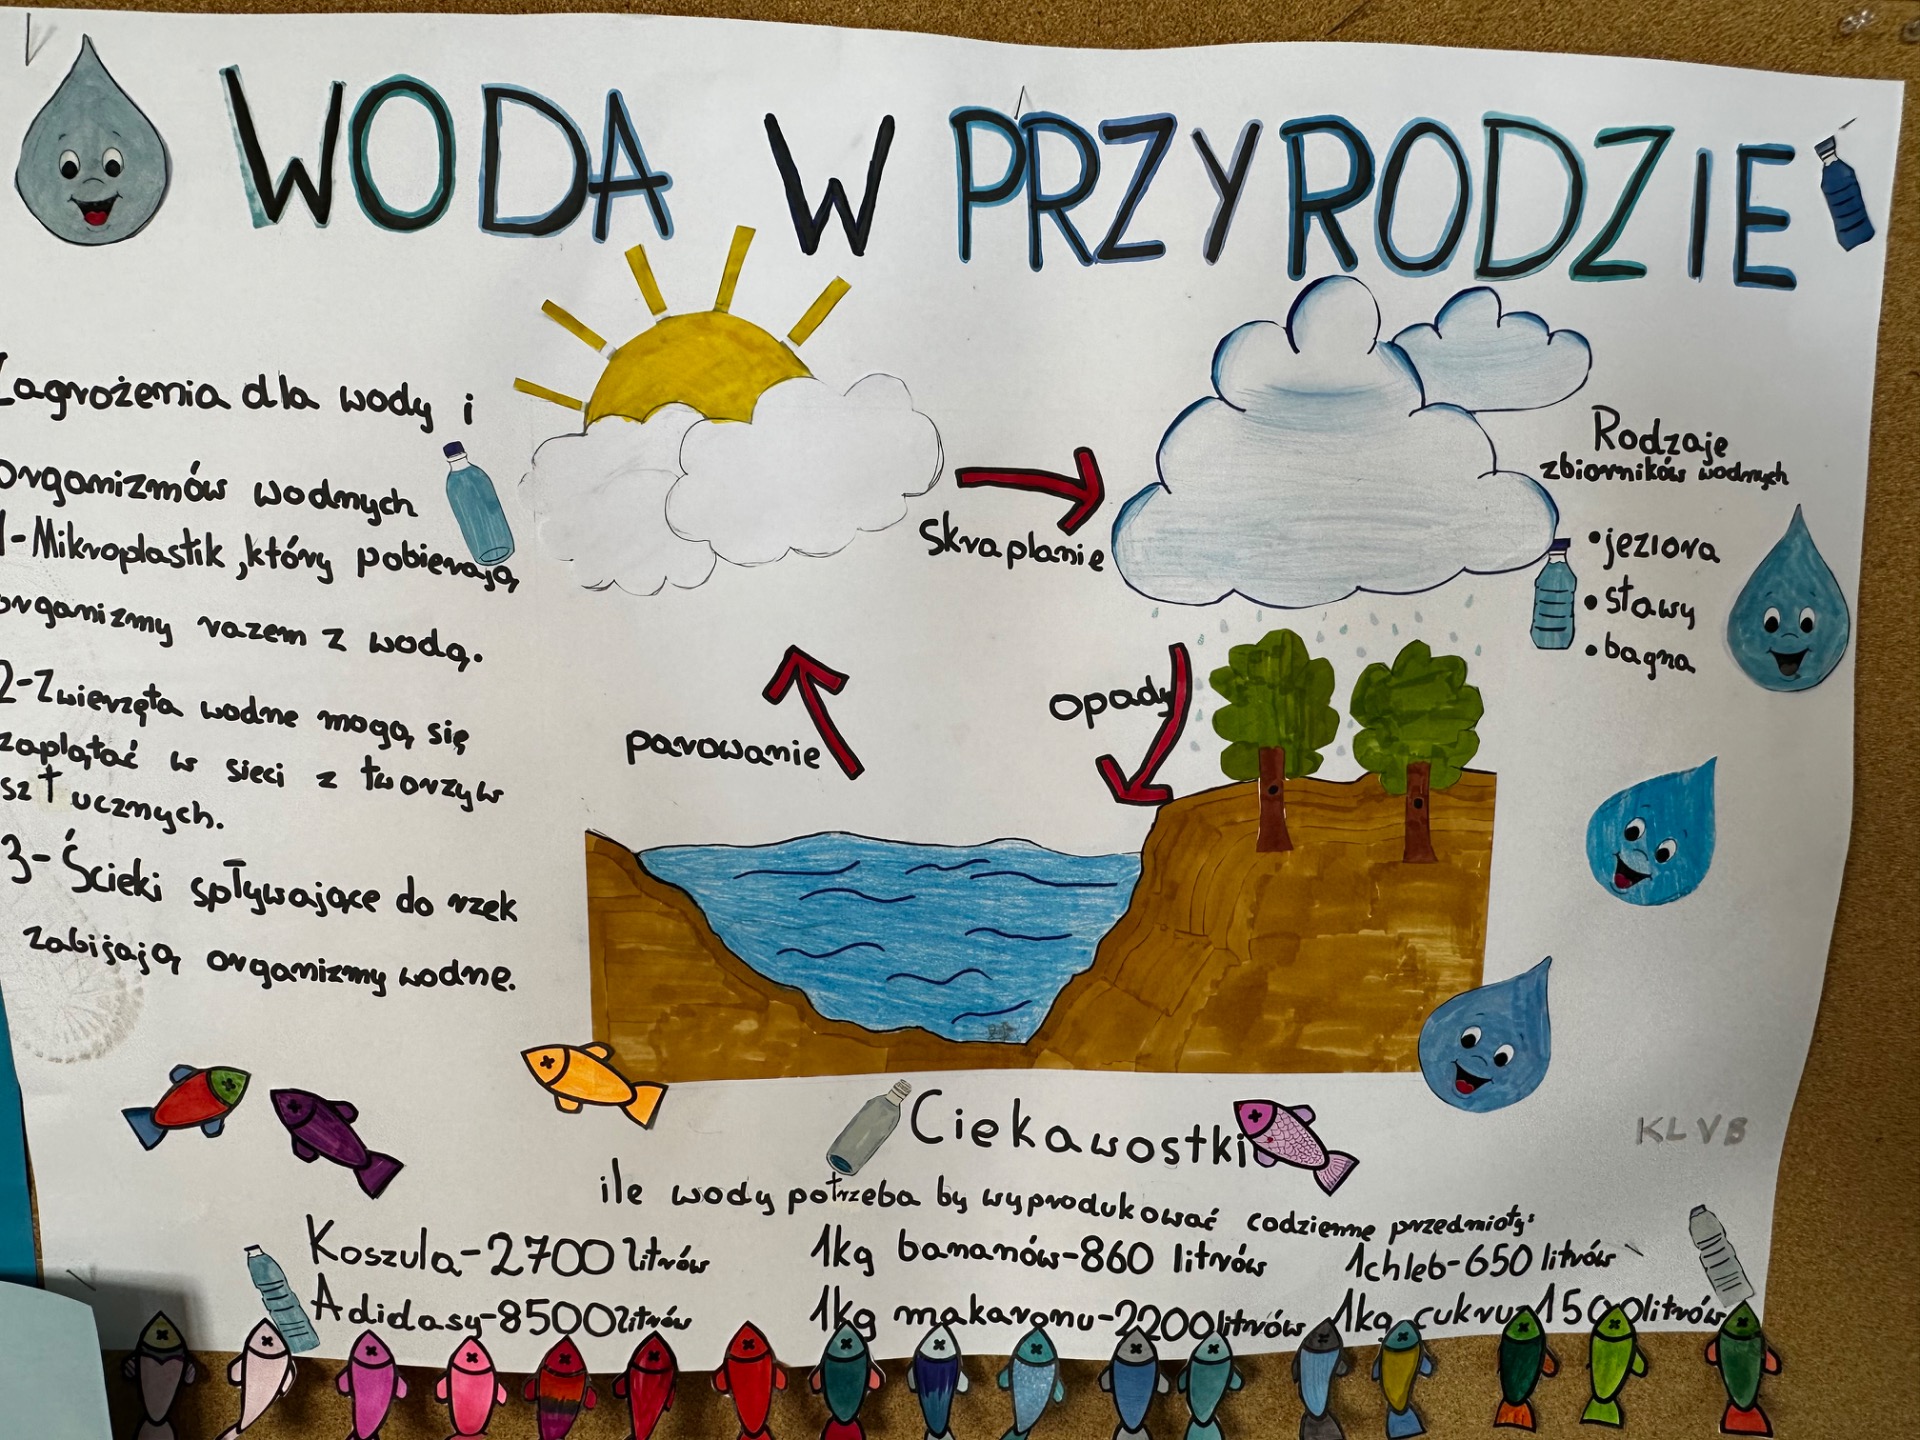 WODA W PRZYRODZIE
Zagrożenia dla wody i
organizmów wodnych
1-Mikroplastik, który pobierają
organizmy razem z wodą.
2-Zwierzęta wodne mogą się
zaplątać w sieci z tworzyw
sztucznych.
3-Ścieki spływające do rzek
zabijają organizmy wodne.
Skraplanie
parowanie
opady
Rodzaje
zbiorników wodnych
•jeziora
•stawy
•bagna
KL VB
Ciekawostki
ile wody potrzeba by wyprodukować codzienne przedmioty:
Koszula-2700 litrów
Adidasy-8500 litrów
1kg bananów-860 litrów
1kg makaronu-2200 litrów
1chleb-650 litrów
1kg cukru-1500 litrów